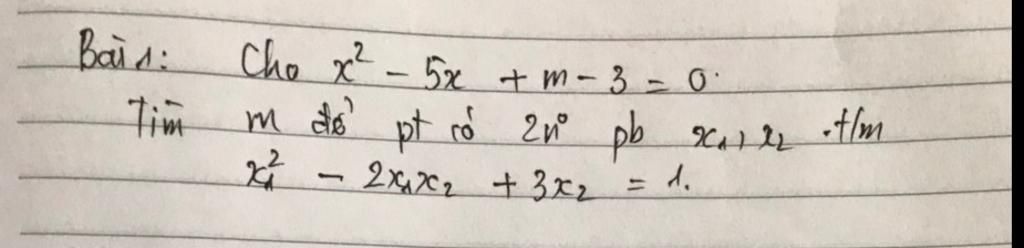 Bài 1: Cho x² - 5x + m - 3 = 0.
Tìm m để pt có 2n⁰ pb x₁, x₂ t/m
x₁² - 2x₁x₂ + 3x₂ = 1.